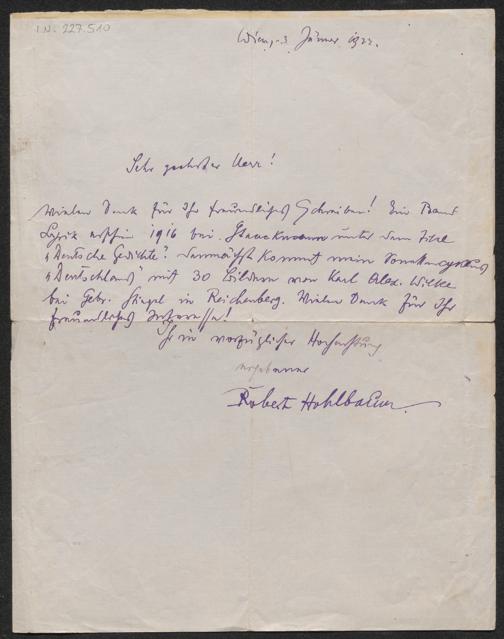 I.N. 227.510
Wien, 3. Jänner 1922.
Sehr geehrter Herr!
Vielen Dank für Ihr freundliches Schreiben! Ein Band
Lyrik erschien 1916 bei Staackmann unter dem Titel
„Deutsche Gedichte". Demnächst kommt mein Sonettencyklus
„Deutschland" mit 30 Bildern von Karl Alex. Wilke
bei Gebr. Stiepel in Reichenberg. Vielen Dank für Ihr
freundliches Interesse!
Ihr in vorzüglicher Hochachtung
ergebener
Robert Hohlbaum.